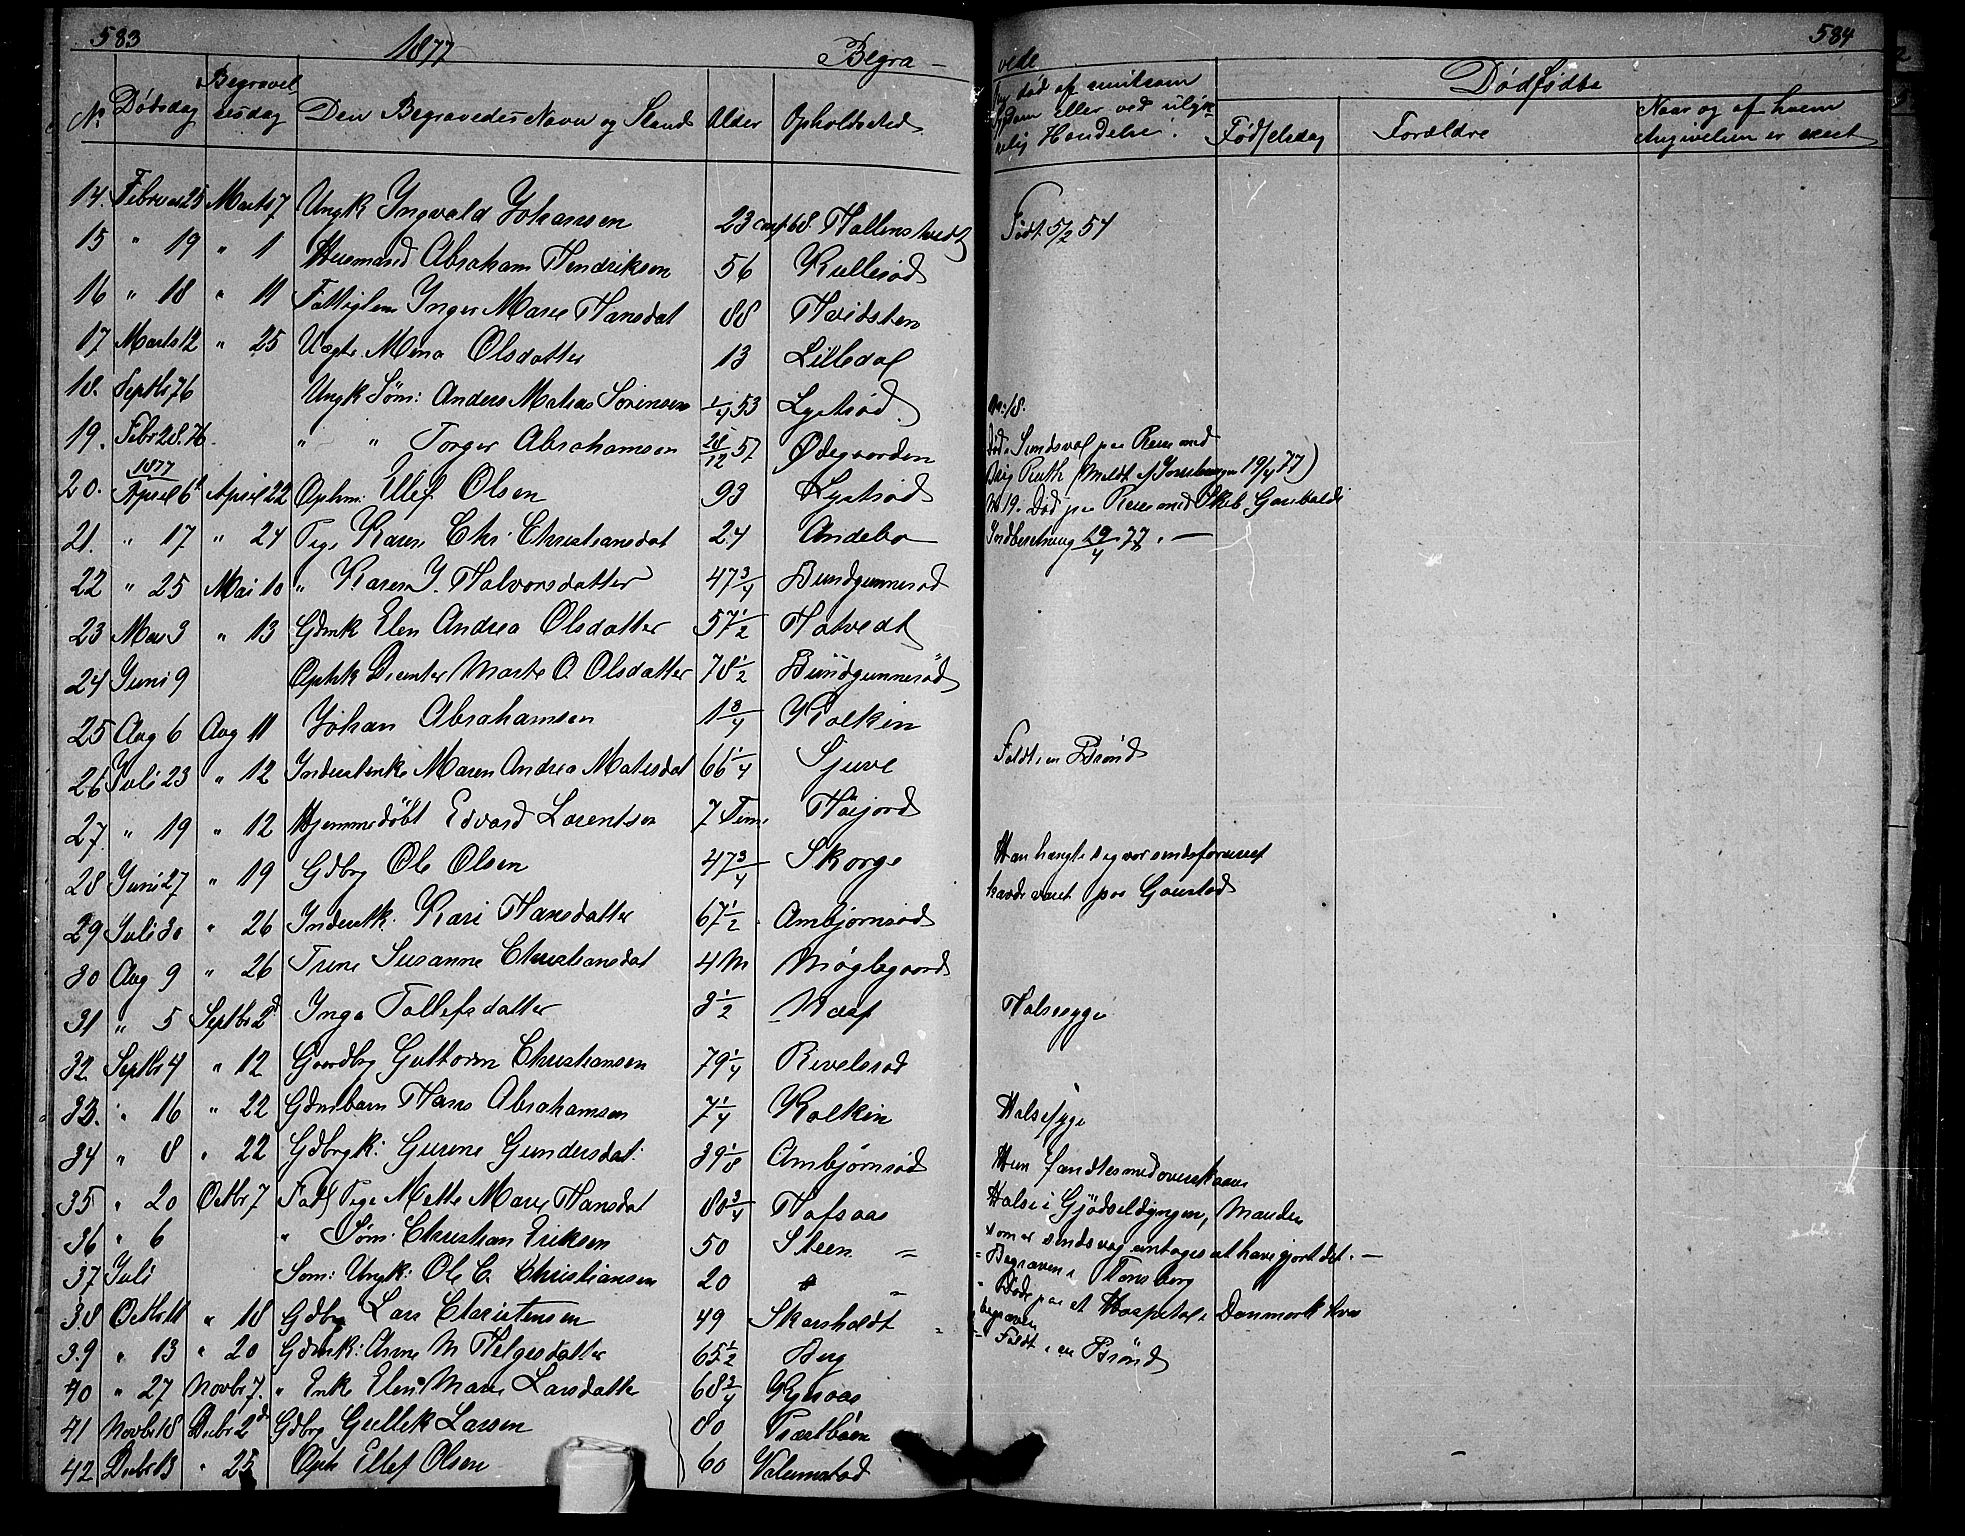 583
1877
Begra-
No Dødsdag Begravelsesdag Den Begravedes Navn og Stand Alder Opholdssted
14. Februar 25 Marts 7 Ungk Yngvald Johansen 23 68. Hallenstvedt
15 " 19 " 1 Huusmand Abraham Hendriksen 56 Kullerød
16 " 18 " 11 Fattiglem Inger Marie Hansdat 88 Hvidsten
17 Marts 12 " 25 Mina Olsdatter 13 Lilledal
18. Septbr 76 Ungk Søm: Anders Matias Sørensen 1/4 53 Lystsød
19. Febr 28. 76. " " Torger Abrahamsen 28/12 57 Ødegaarden
1877
20. April 6t April 22 Ophm: Ellef Olsen 93 Lystsød
21. " 17 " 24 Pige Karen Chr. Christiansdat 24 Andebo
22 " 25 Mai 10 " Karen J. Halvorsdatter 47 3/4 Bundgunnerød
23 Mai 3 " 13 Gdmk Elen Andrea Olsdatter 57 1/2 Hotvedt
24 Juni 9 Marte O. Olsdatter 78 1/2 Bundgunnerød
25 Aug 6 Aug 11 Johan Abrahamsen 1 3/4 Kolkin
26 Juli 23 " 12 Inderstenke Maren Andrea Matisdat 66 1/4 Sjuve
27. " 19 " 12 Hjemmedøbt Edvard Larentsen 7 Tim. Høijord
28 Juni 27 " 19 Gdbrg Ole Olsen 47 3/4 Skorge
29 Juli 30 " 26 Inderstk. Kari Hansdatter 67 1/2 Ambjørnrød
30 Aug 9 " 26 Trine Susanne Christiansdat 4 M Møglegaard
31 " 5 Septbr 2d Inga Tollefsdatter 3 1/2 Næs
32 Septbr 4 " 12 Gaardbrg Guttorm Christiansen 79 1/4 Revelsrød
33. " 16 " 22 Gdmbarn Hans Abrahamsen 7 1/4 Kolkin
34 " 8 " 22 Gdbrgk: Gurine Gundersdat: 39 1/8 Ambjørnrød
35 " 20 Octbr 7 Fatl Pige Mette Marie Hansdat 80 3/4 Hafsaas
36 " 6 " Søm: Christian Eriksen 50 Steen
37 Juli Søm: Ungk: Ole C. Christiansen 20
38 Octbr 11 " 18 Gdbrg Lars Christensen 49 Skarsholdt
39 " 13 " 20 Gdmk: Anne M Helgesdatter 65 1/2 Berg
40 " 27 Novbr 7. " Enke Elen Marie Larsdatter 68 3/4
41 Novbr 18 Decbr 2d Gdbrg Gullik Larsen 80 Præstbøen
42 Decbr 13 " 25 Oph Ellef Olsen 60
584
vede
død af smitsom
Sygdom eller ved ulykkelig Hændelse.
Dødfødte
Fødselsdag Forældre Naar og af hvem Angivelsen er skeet
Født 5/2 54
No: 18.
Død i Sundsval paa Reise med
Brig Ruth (Meldt af 19/4 77)
No 19. Død paa Reise med Skib Garibaldi
Indberetning 19/4 77. —
Faldt i en Brønd
Han hængte sig var sindsforvirret
havde været paa Gaustad
Halssyge
Halssyge
Hun fandtes med overskaaren
Hals i Gjødseldyngen, Manden
som er sindssvag antages at have gjort det. —
" Begraven i Tønsberg
" Døde paa et Hospital i Danmark hvor
begraven
= Faldt i en Brønd